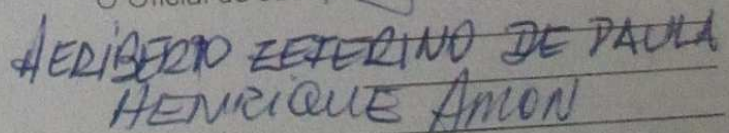 HERIBERTO ZEFERINO DE PAULA
HENRIQUE AMON